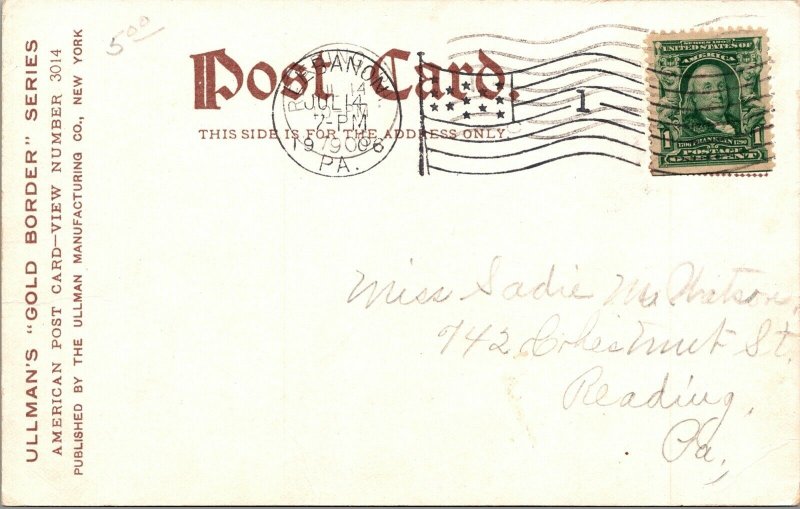 5 00
Post Card.
THIS SIDE IS FOR THE ADDRESS ONLY
LEBANON
JUL 14
7-PM
1906
PA.
1
UNITED STATES OF AMERICA
FRANKLIN
POSTAGE
ONE CENT
ULLMAN'S "GOLD BORDER" SERIES
AMERICAN POST CARD—VIEW NUMBER 3014
PUBLISHED BY THE ULLMAN MANUFACTURING CO., NEW YORK
Miss Sadie
742 Chestnut St.
Reading,
Pa,